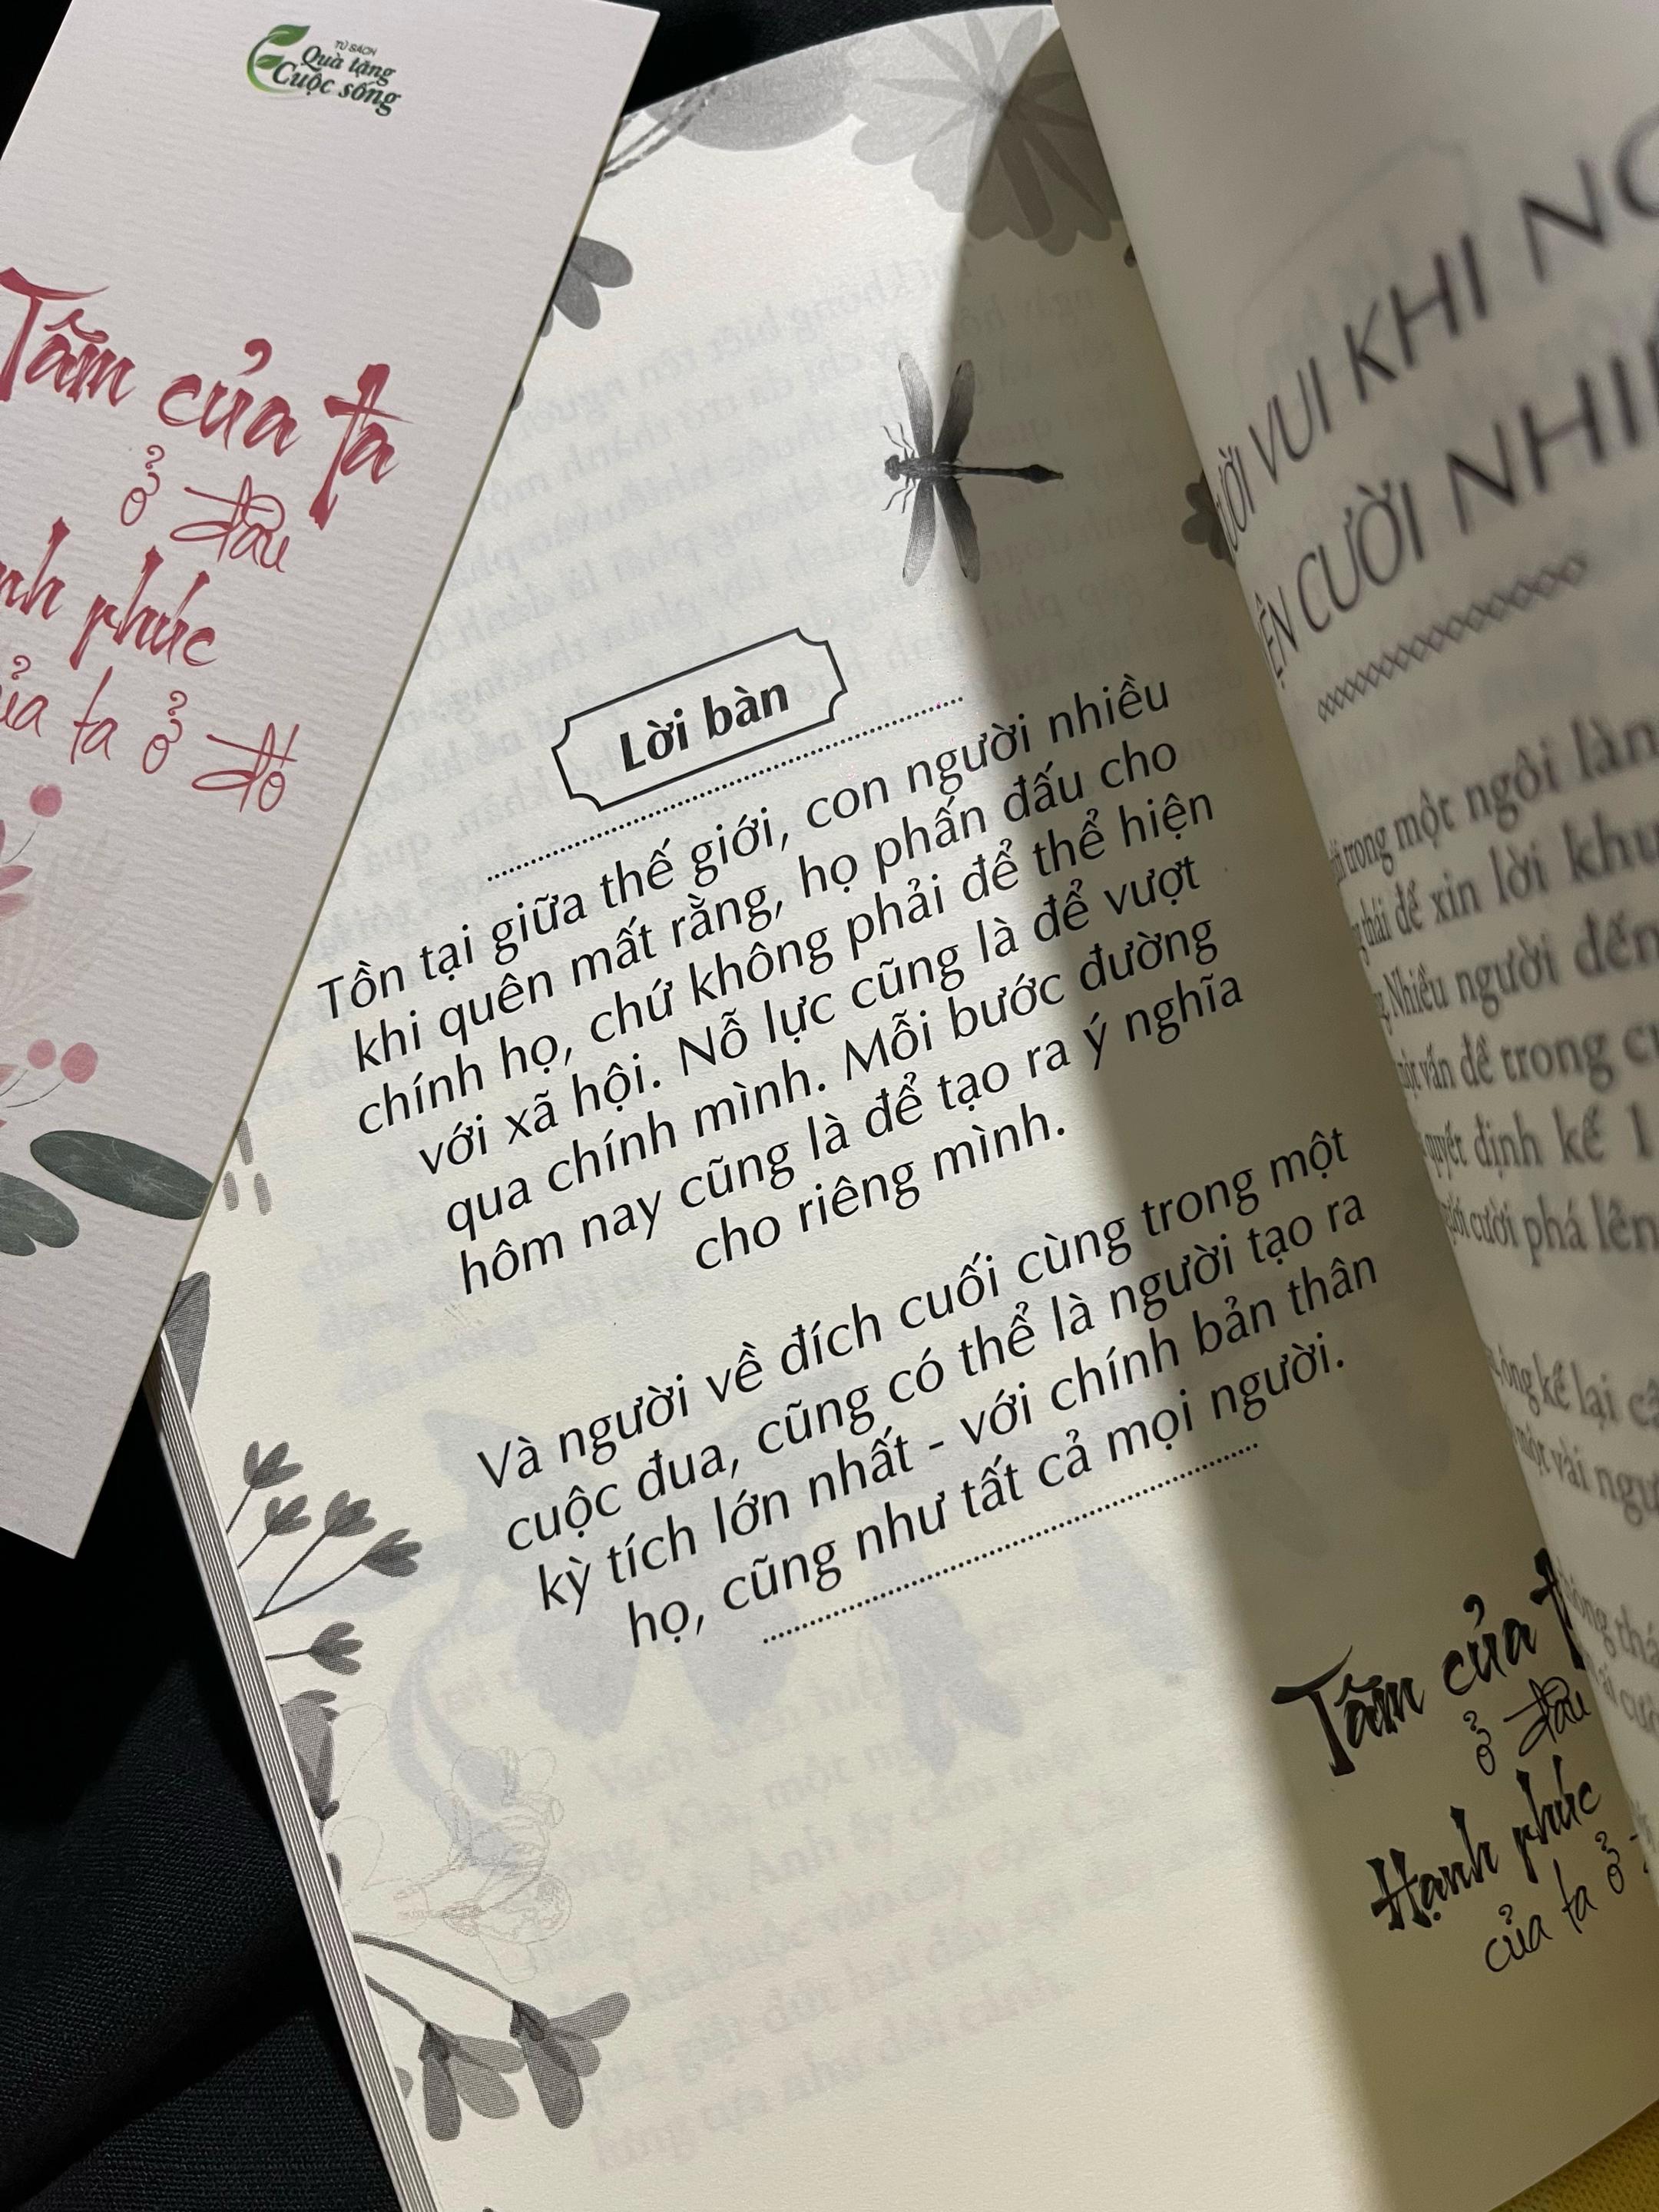 TỦ SÁCH
Quà tặng
Cuộc sống
Tâm của ta
ở đâu
phúc
ta ở đó
Lời bàn
Tồn tại giữa thế giới, con người nhiều
khi quên mất rằng, họ phấn đấu cho
chính họ, chứ không phải để thể hiện
với xã hội. Nỗ lực cũng là để vượt
qua chính mình. Mỗi bước đường
hôm nay cũng là để tạo ra ý nghĩa
cho riêng mình.
Và người về đích cuối cùng trong một
cuộc đua, cũng có thể là người tạo ra
kỳ tích lớn nhất - với chính bản thân
họ, cũng như tất cả mọi người.
Tâm của
ở đâu
Hạnh phúc
của ta ở
VUI KHI
CƯỜI
trong một ngôi làn
thái để xin lời
Nhiều người đến
vấn đề trong
quyết định kể 1
cười phá lên
ông kể lại
một vài